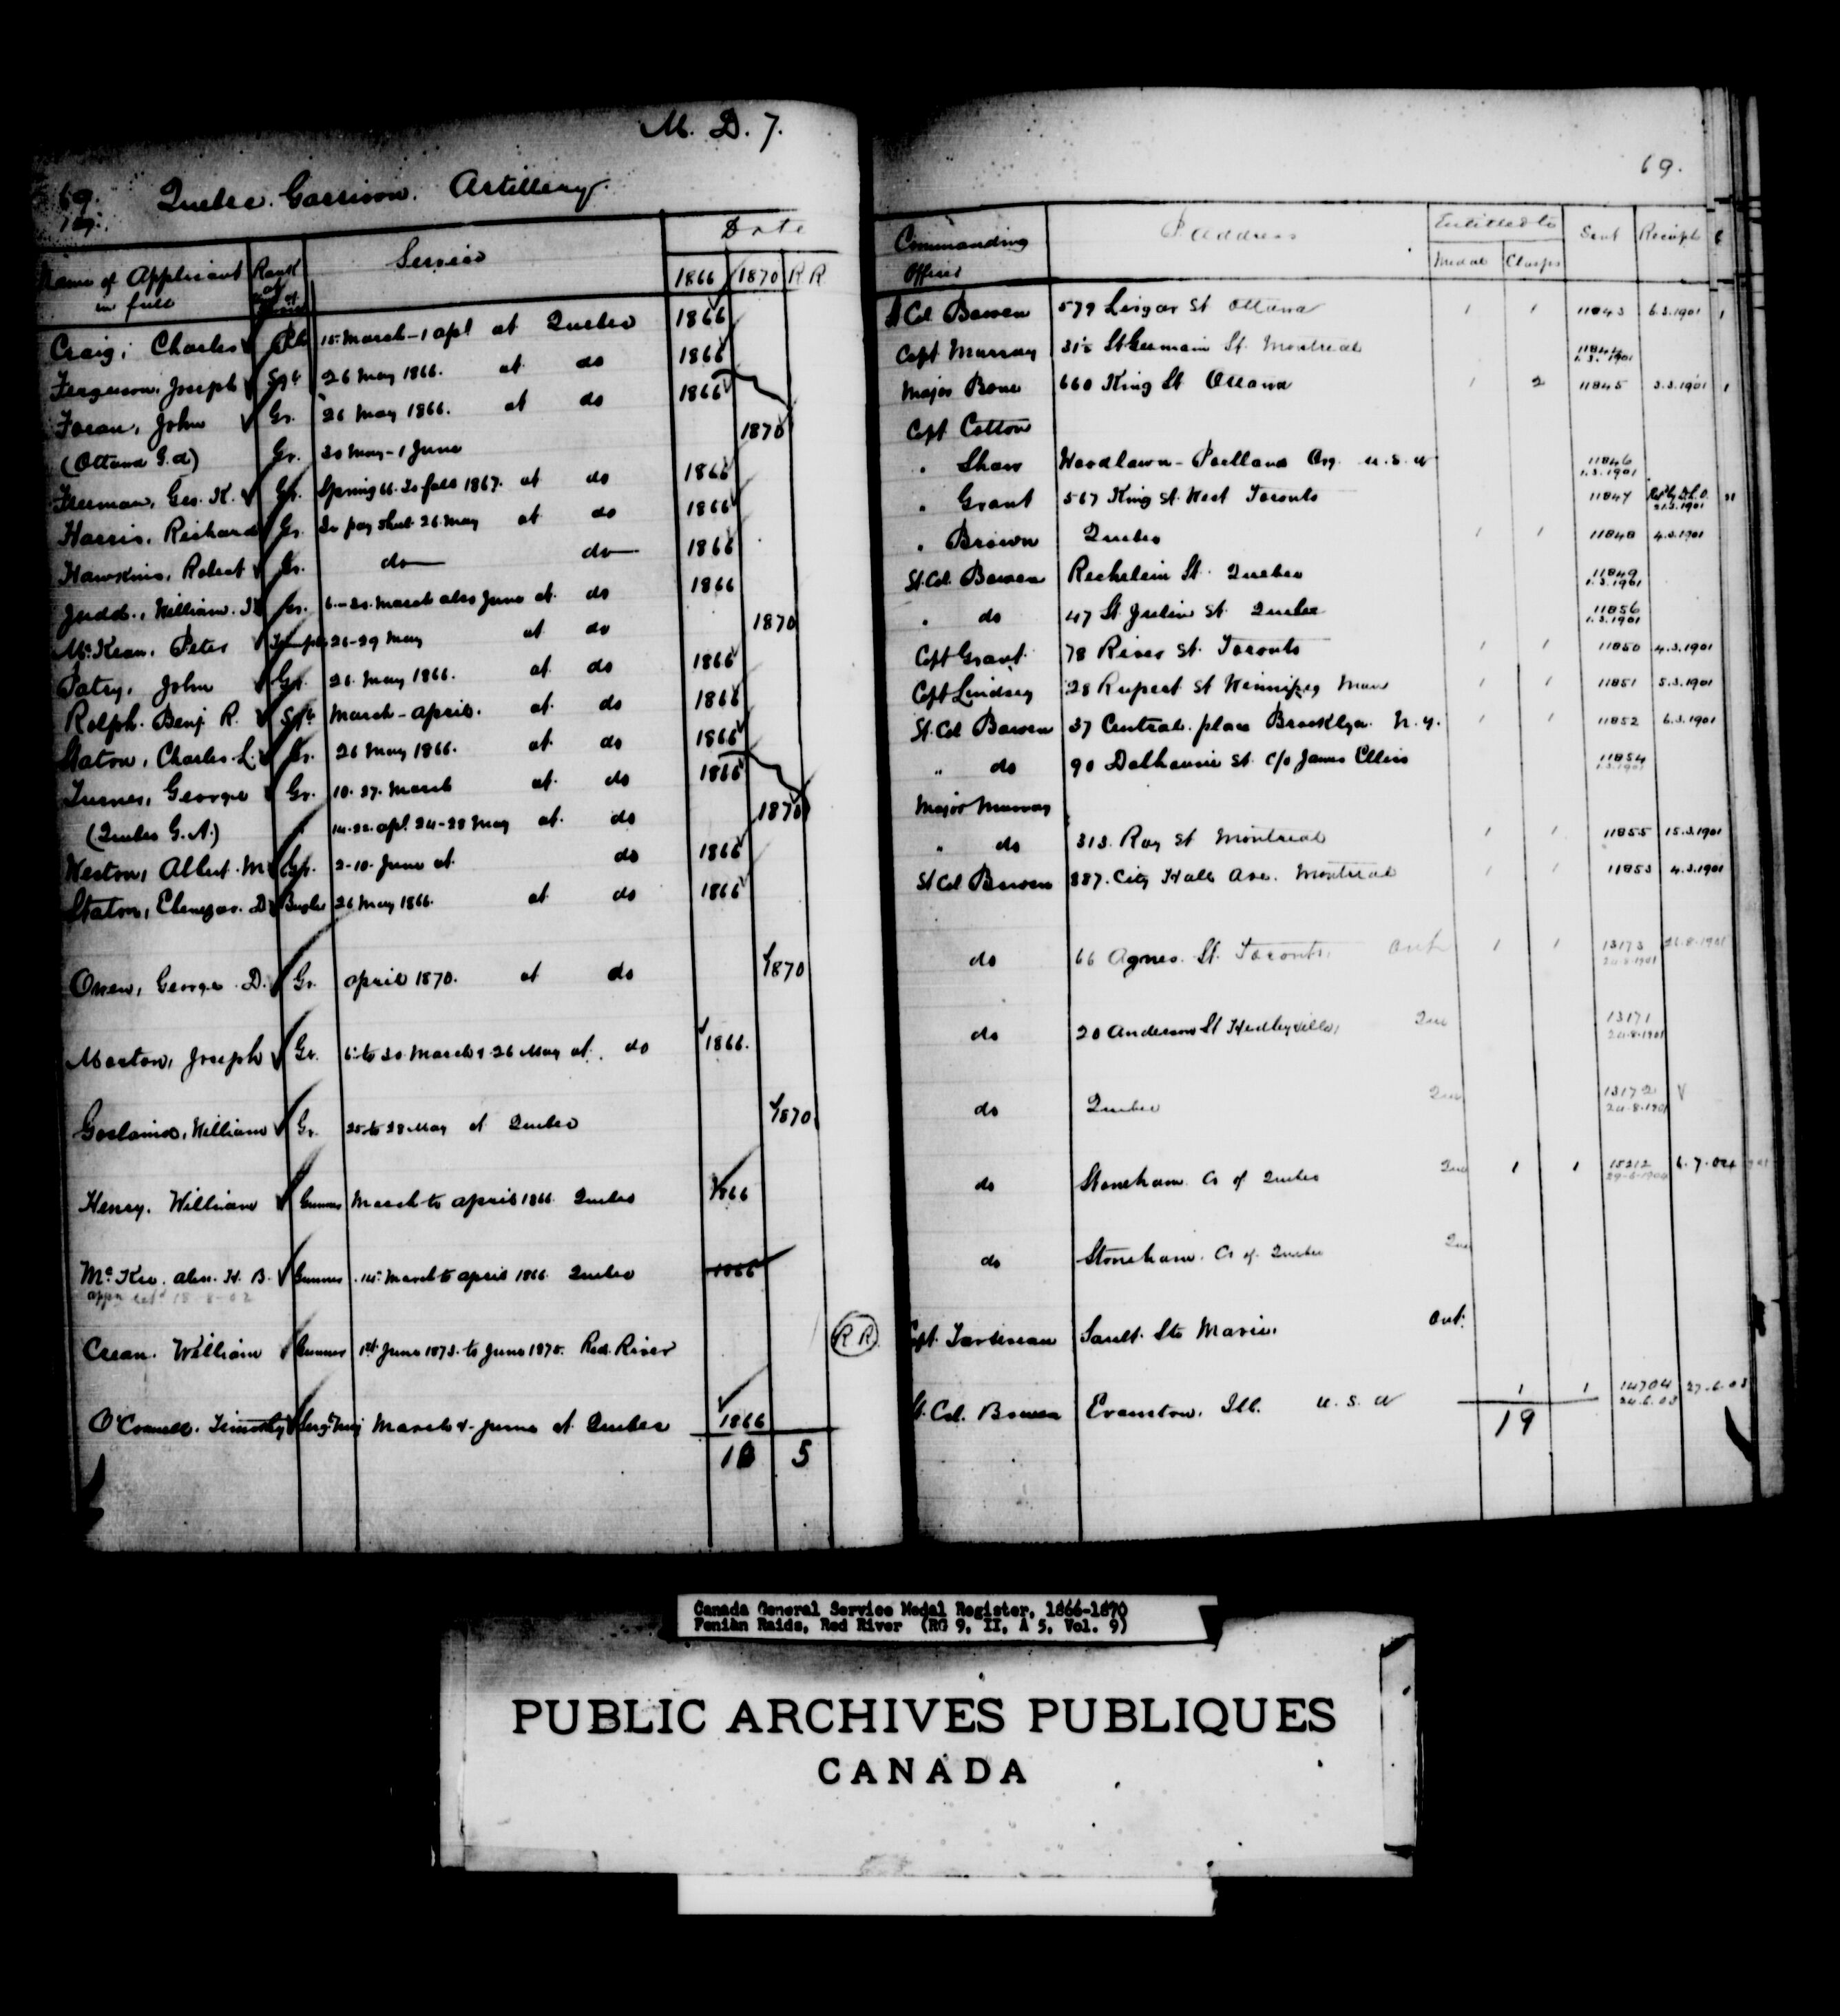 M. D. 7.
69.
Quebec Garrison Artillery
Name of Applicant in full | Rank | Service | Date 1866 | 1870 | R R
Craig, Charles | | 15 March - 1 Apl at Quebec | 1866
Ferguson, Joseph | Sgt | 26 May 1866. at do | 1866
Foran, John | Gr. | 26 May 1866. at do | 1866
(Ottawa G. A) | Gr. | 20 May - 1 June | 1870
Freeman, Geo. K. | Gr. | Spring 66. To fall 1867. at do | 1866
Harris, Richard | Gr. | On pay sheet 26 May at do | 1866
Hawkins, Robert | Gr. | do do | 1866
Judd, William | Gr. | 6 - 20. March also June at do | 1866
McKean, Peter | | 26-29 May at do | 1870
Patry, John | Gr. | 26. May 1866. at do | 1866
Rolph. Benj. R. | Sgt | March - April. at do | 1866
Staton, Charles L. | Gr. | 26 May 1866. at do | 1866
Turner, George | Gr. | 10. 27. March at do | 1866
(Quebec G. A.) | 14-22. Apl 24-28 May at do | 1870
Weston, Albert M | Gr. | 2-10. June at do | 1866
Staton, Ebenezer. D | Bugler | 26 May 1866. at do | 1866
Owen, George D. | Gr. | April 1870. at do | 1870
Morton, Joseph | Gr. | 6 to 20 March & 26 May at do | 1866.
William | Gr. | 25 to 28 May at Quebec | 1870
Henry, William | Gunner | March to April 1866. Quebec | 1866
McKee. Alex. H. B. | Gunner | 14 March to April 1866 Quebec | 1866
18-8-02
Crean. William | Gunner | 1st June 1873. to June 1875. Red River | R R
O'Connell. Timothy | March & June at Quebec | 1866
5
69.
Commanding Officer | P Address | Entitled to Medal | Clasps | Sent | Receipt
Lt Col Bowen | 579 Lisgar St Ottawa | 1 | 1 | 11843 | 6.3.1901
Capt Murray | St Germain St. Montreal | 11844 1.3.1901
Major Bone | 660 King St Ottawa | 1 | 2 | 11845 | 3.3.1901
Capt Cotton
" Shaw | Woodlawn - Portland Org. U.S.A | 11846 1.3.1901
" Grant | 567 King St. West Toronto | 11847 | 21.3.1901
" Brown | Quebec | 1 | 1 | 11848 | 4.3.1901
Lt. Col. Bowen | Richelieu St. Quebec | 11849 1.3.1901
" do | 47 St Julien St. Quebec | 11856 1.3.1901
Capt Grant | 78 River St. Toronto | 1 | 1 | 11850 | 4.3.1901
Capt Lindsey | 28 Rupert St Winnipeg Man | 1 | 1 | 11851 | 5.3.1901
Lt. Col Bowen | 37 Central place Brooklyn. N. Y. | 1 | 1 | 11852 | 6.3.1901
" do | 90 Dalhousie St. C/o James Ellis | 11854 1.3.1901
Major Murray
" do | 313. Roy St Montreal | 1 | 1 | 11855 | 15.3.1901
Lt Col Bowen | 887. City Hall Ave. Montreal | 1 | 1 | 11853 | 4.3.1901
do | 66 Agnes. St. Toronto, Ont | 1 | 1 | 13173 | 26.8.1901
do | 20 Anderson St Hedleyville, Que | 13171 24.8.1901
do | Quebec Que | 13172 24.8.1901
do | Stoneham. Co of Quebec Que | 1 | 1 | 15212 | 6.7.04
do | Stoneham. Co of. Quebec Que
Capt. | Sault. Ste Marie. Ont.
Lt. Col. Bowen | Evanston. Ill. U. S. A | 1 | 1 | 14704 24.6.03 | 27.6.03
19
Canada General Service Medal Register, 1866-1870
Fenian Raids, Red River (RG 9, II, A 5, Vol. 9)
PUBLIC ARCHIVES PUBLIQUES
CANADA